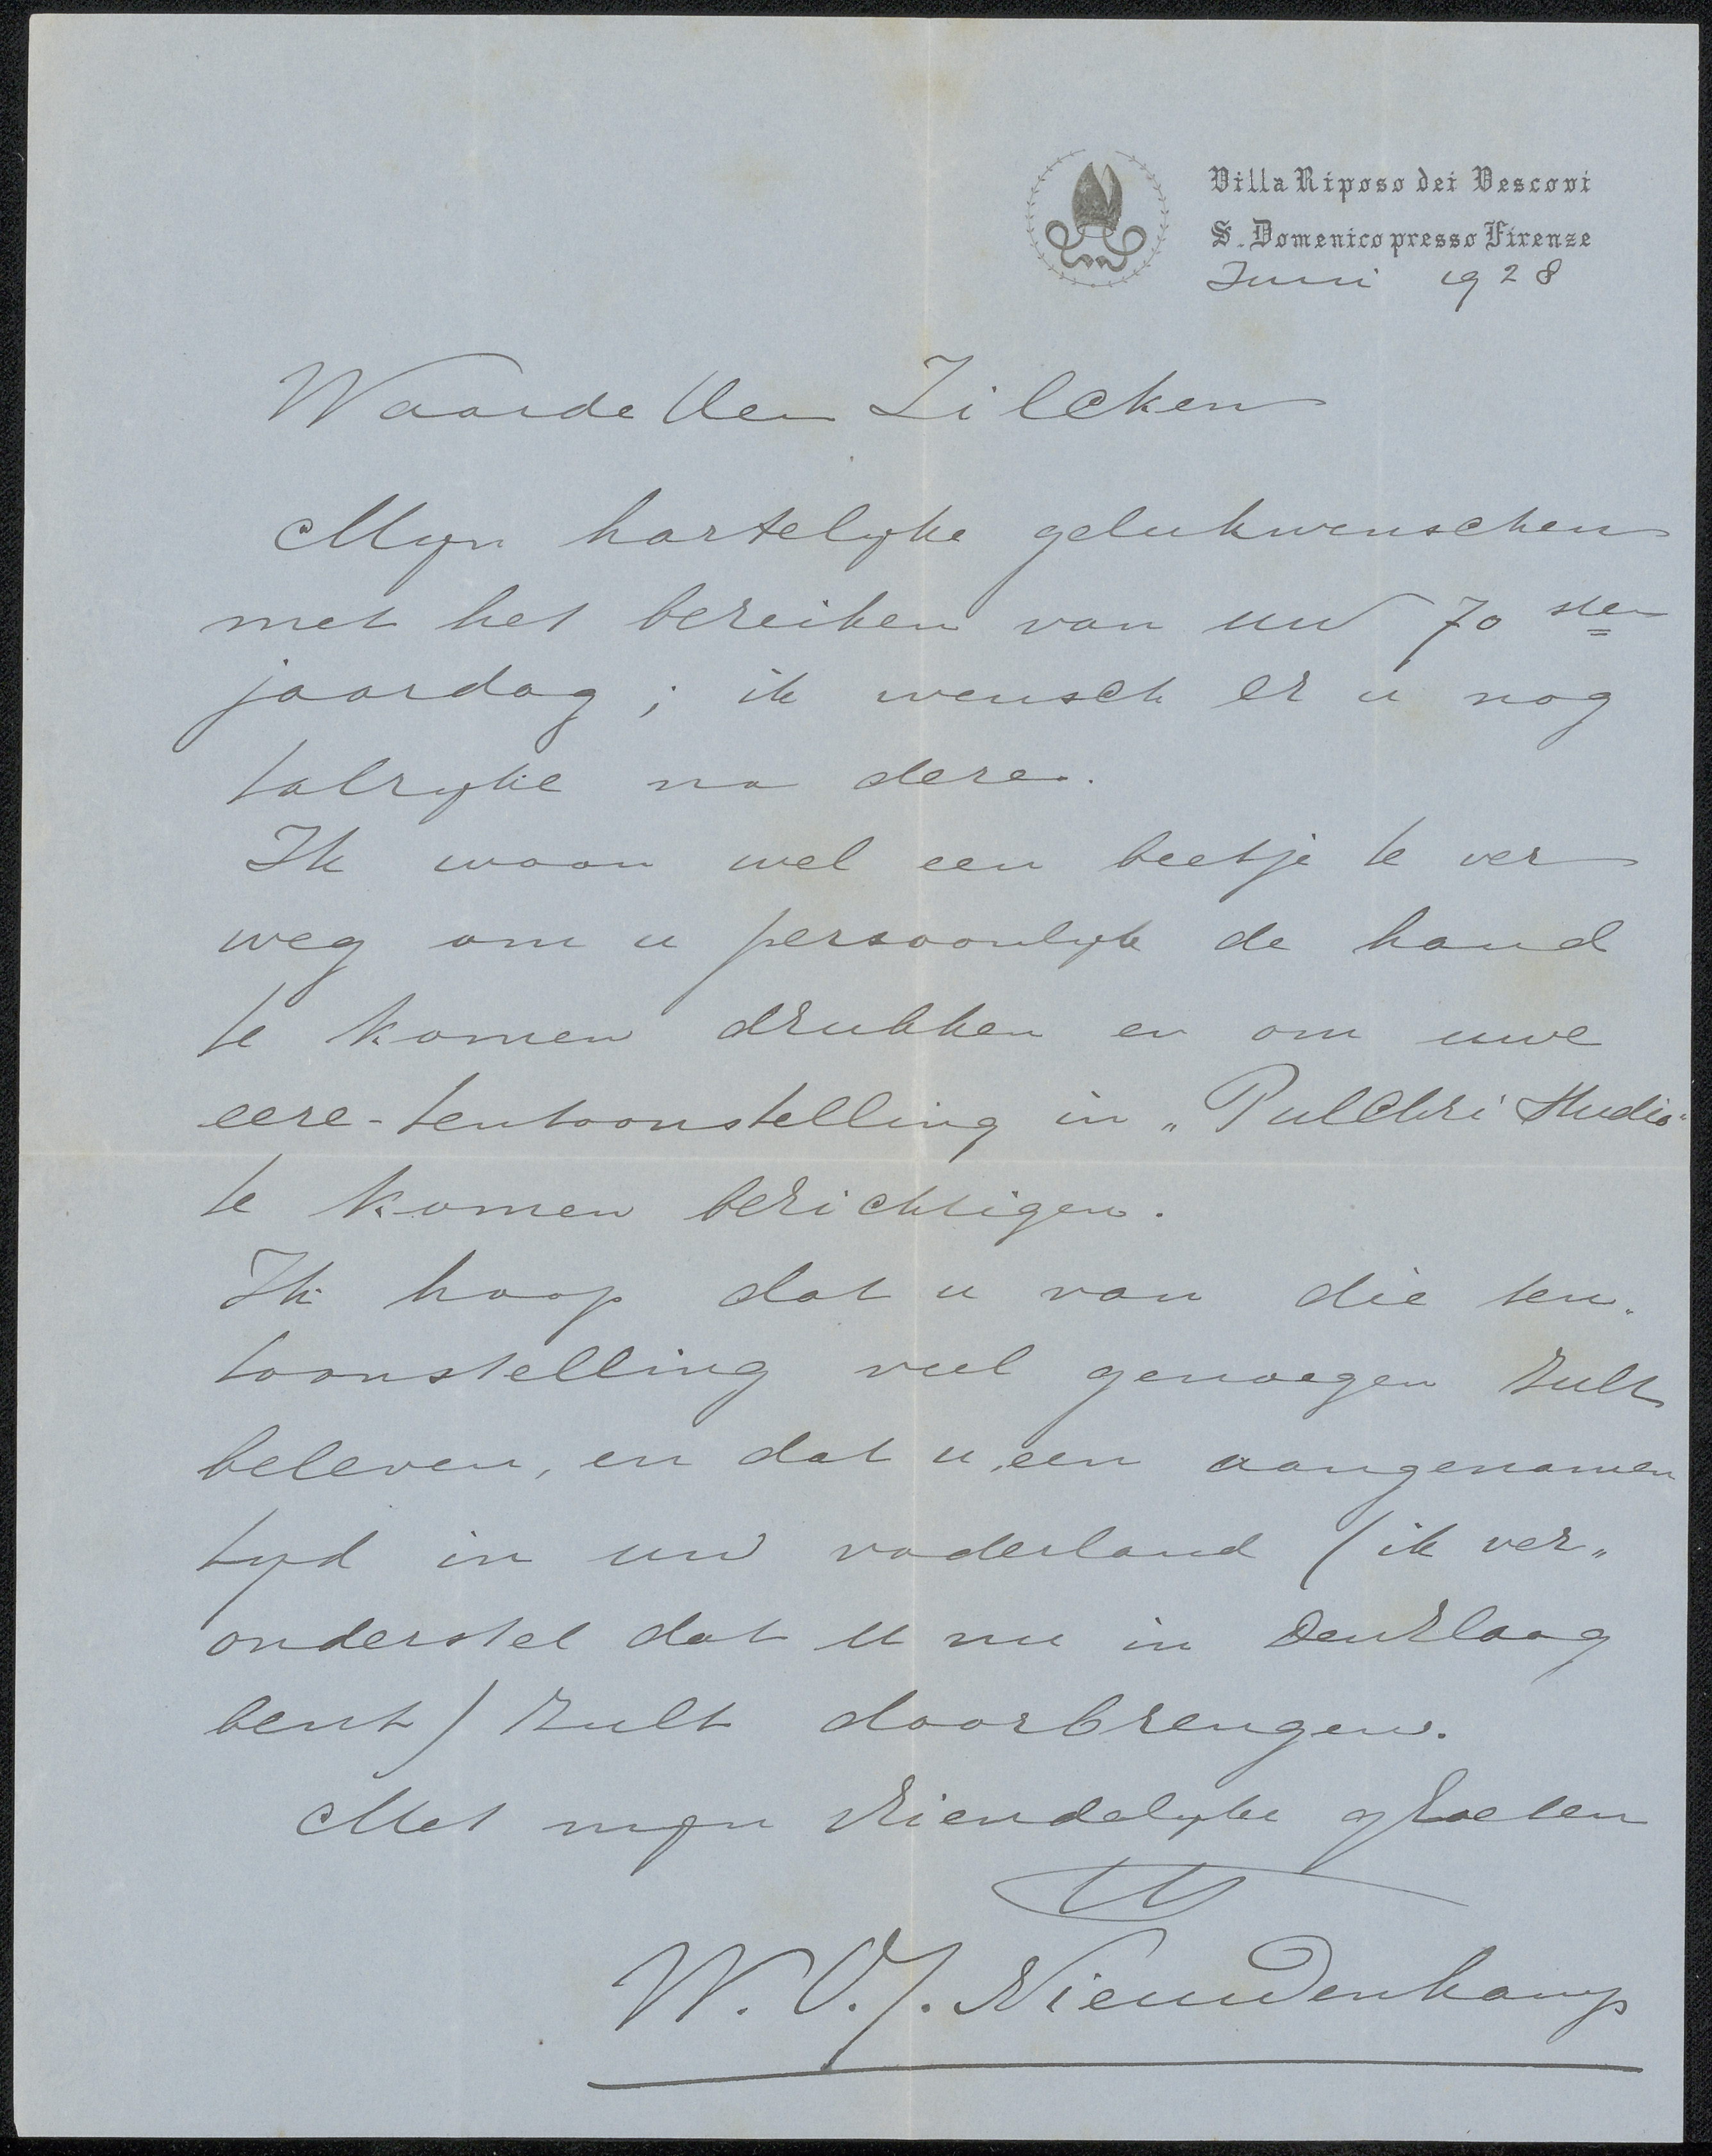 Villa Riposo dei Vescovi
S. Domenico presso Firenze
Juni 1928
Waarde Heer Zilcken
Mijn hartelijke gelukwenschen
met het bereiken van uw 70 sten
jaardag; ik wensch er u nog
talrijke na deze.
Ik woon wel een beetje te ver
weg om u persoonlijk de hand
te komen drukken en om uwe
eere-tentoonstelling in „Pulchri Studio"
te komen bezichtigen.
Ik hoop dat u van die ten„
toonstelling veel genoegen zult
beleven, en dat u een aangenamen
tijd in uw vaderland (ik ver„
onderstel dat u nu in Den Haag
bent) zult doorbrengen.
Met mijn vriendelijke groeten
W.O.J. Nieuwenkamp